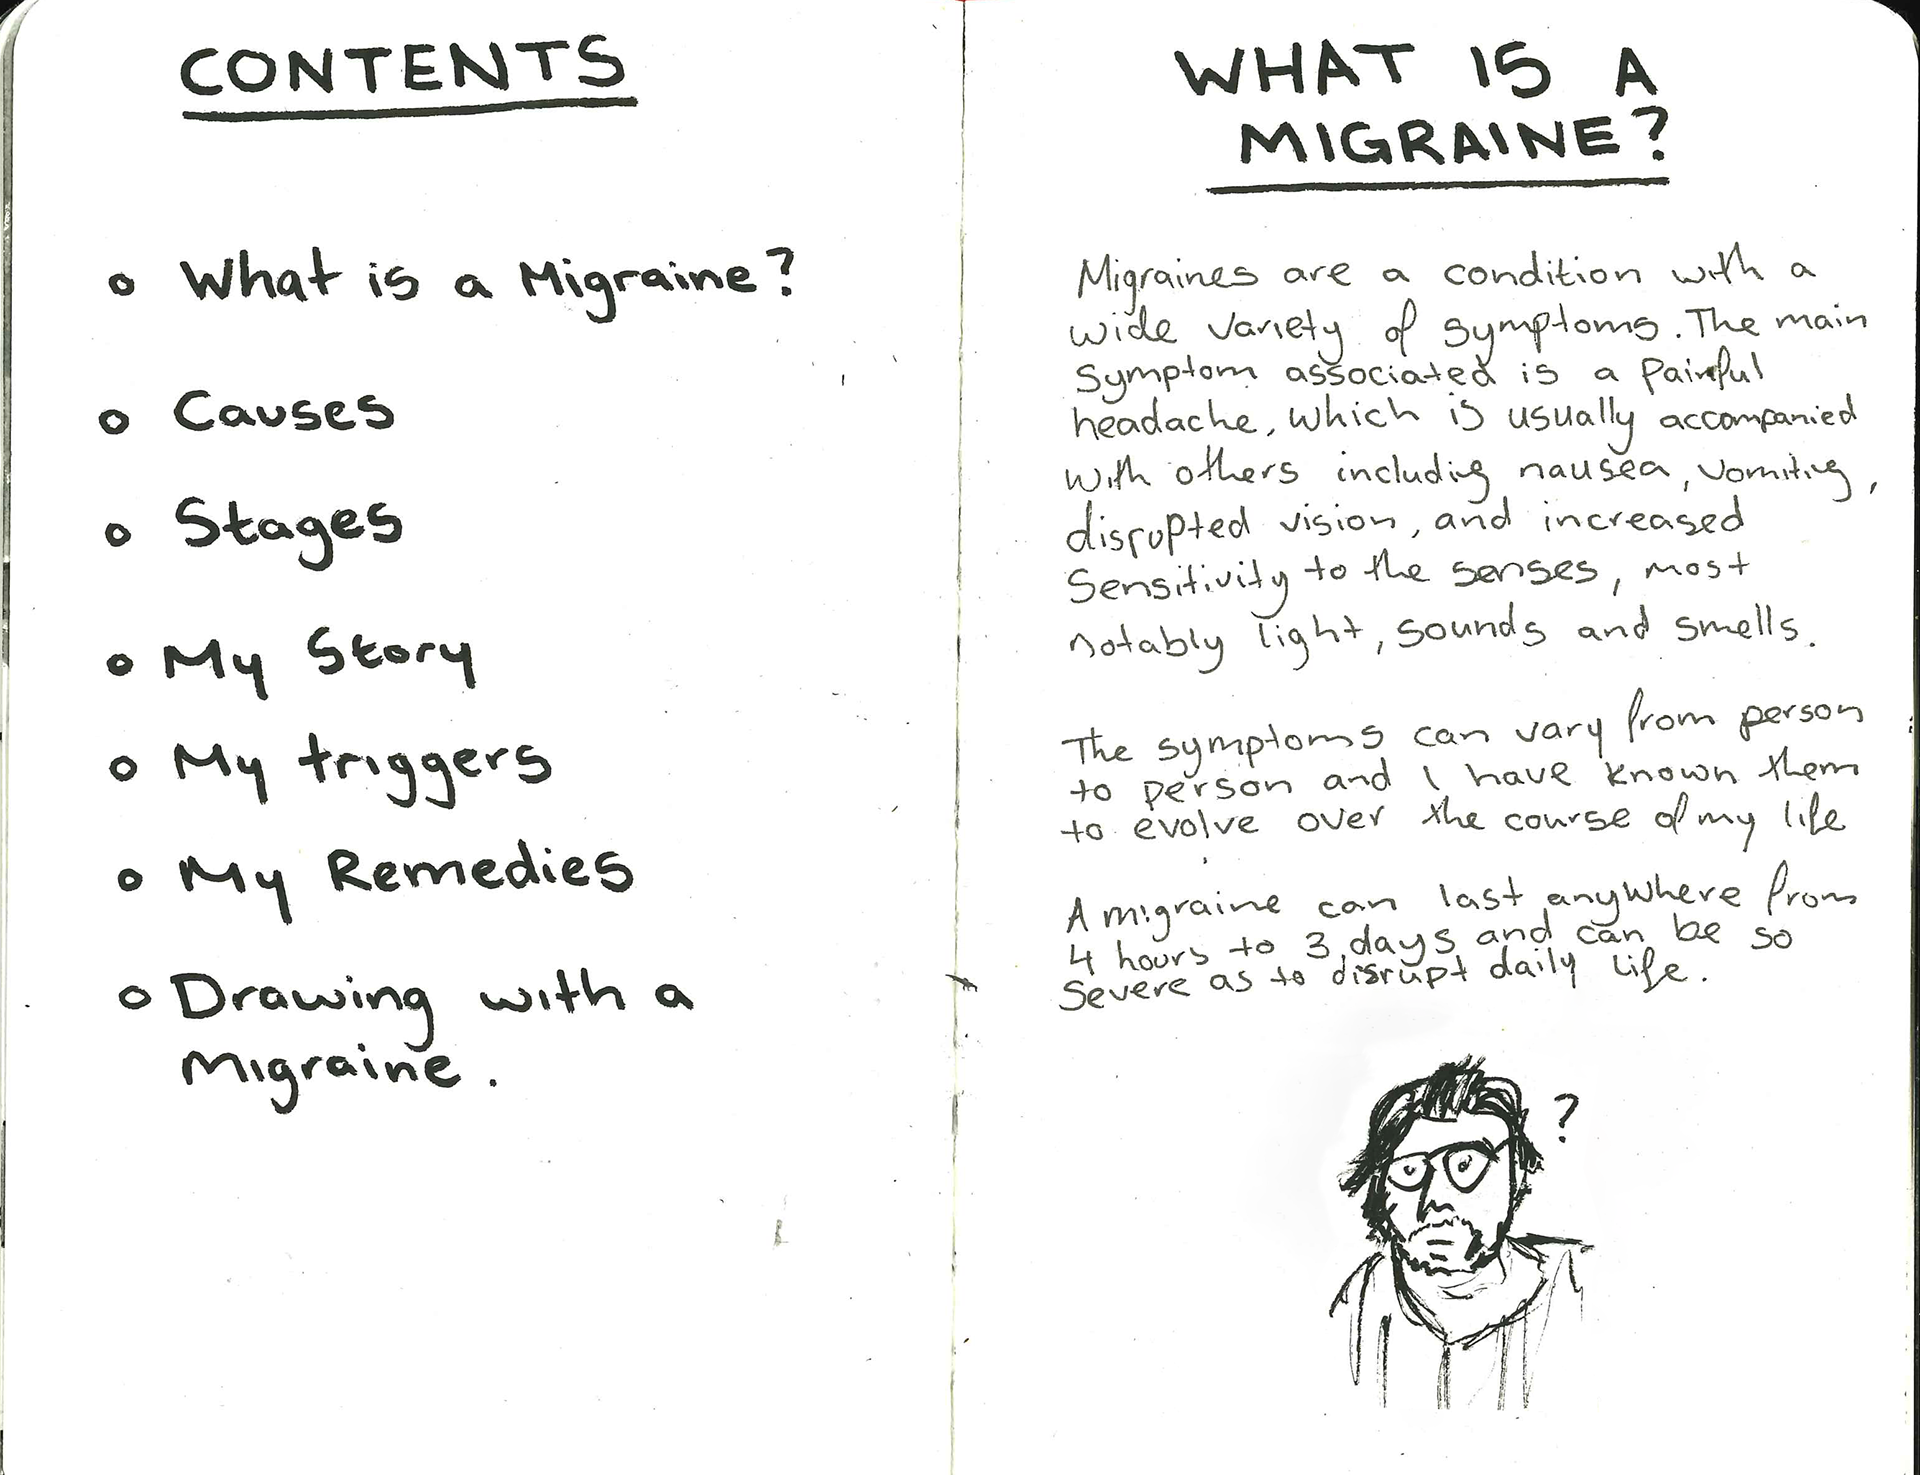 CONTENTS
o What is a Migraine?
o Causes
o Stages
o My Story
o My triggers
o My Remedies
o Drawing with a
Migraine.
WHAT IS A
MIGRAINE?
Migraines are a condition with a
wide variety of symptoms. The main
symptom associated is a painful
headache, which is usually accompanied
with others including nausea, vomiting,
disrupted vision, and increased
Sensitivity to the senses, most
notably light, sounds and smells.
The symptoms can vary from person
to person and I have known them
to evolve over the course of my life
A migraine can last anywhere from
4 hours to 3 days and can be so
severe as to disrupt daily life.
?